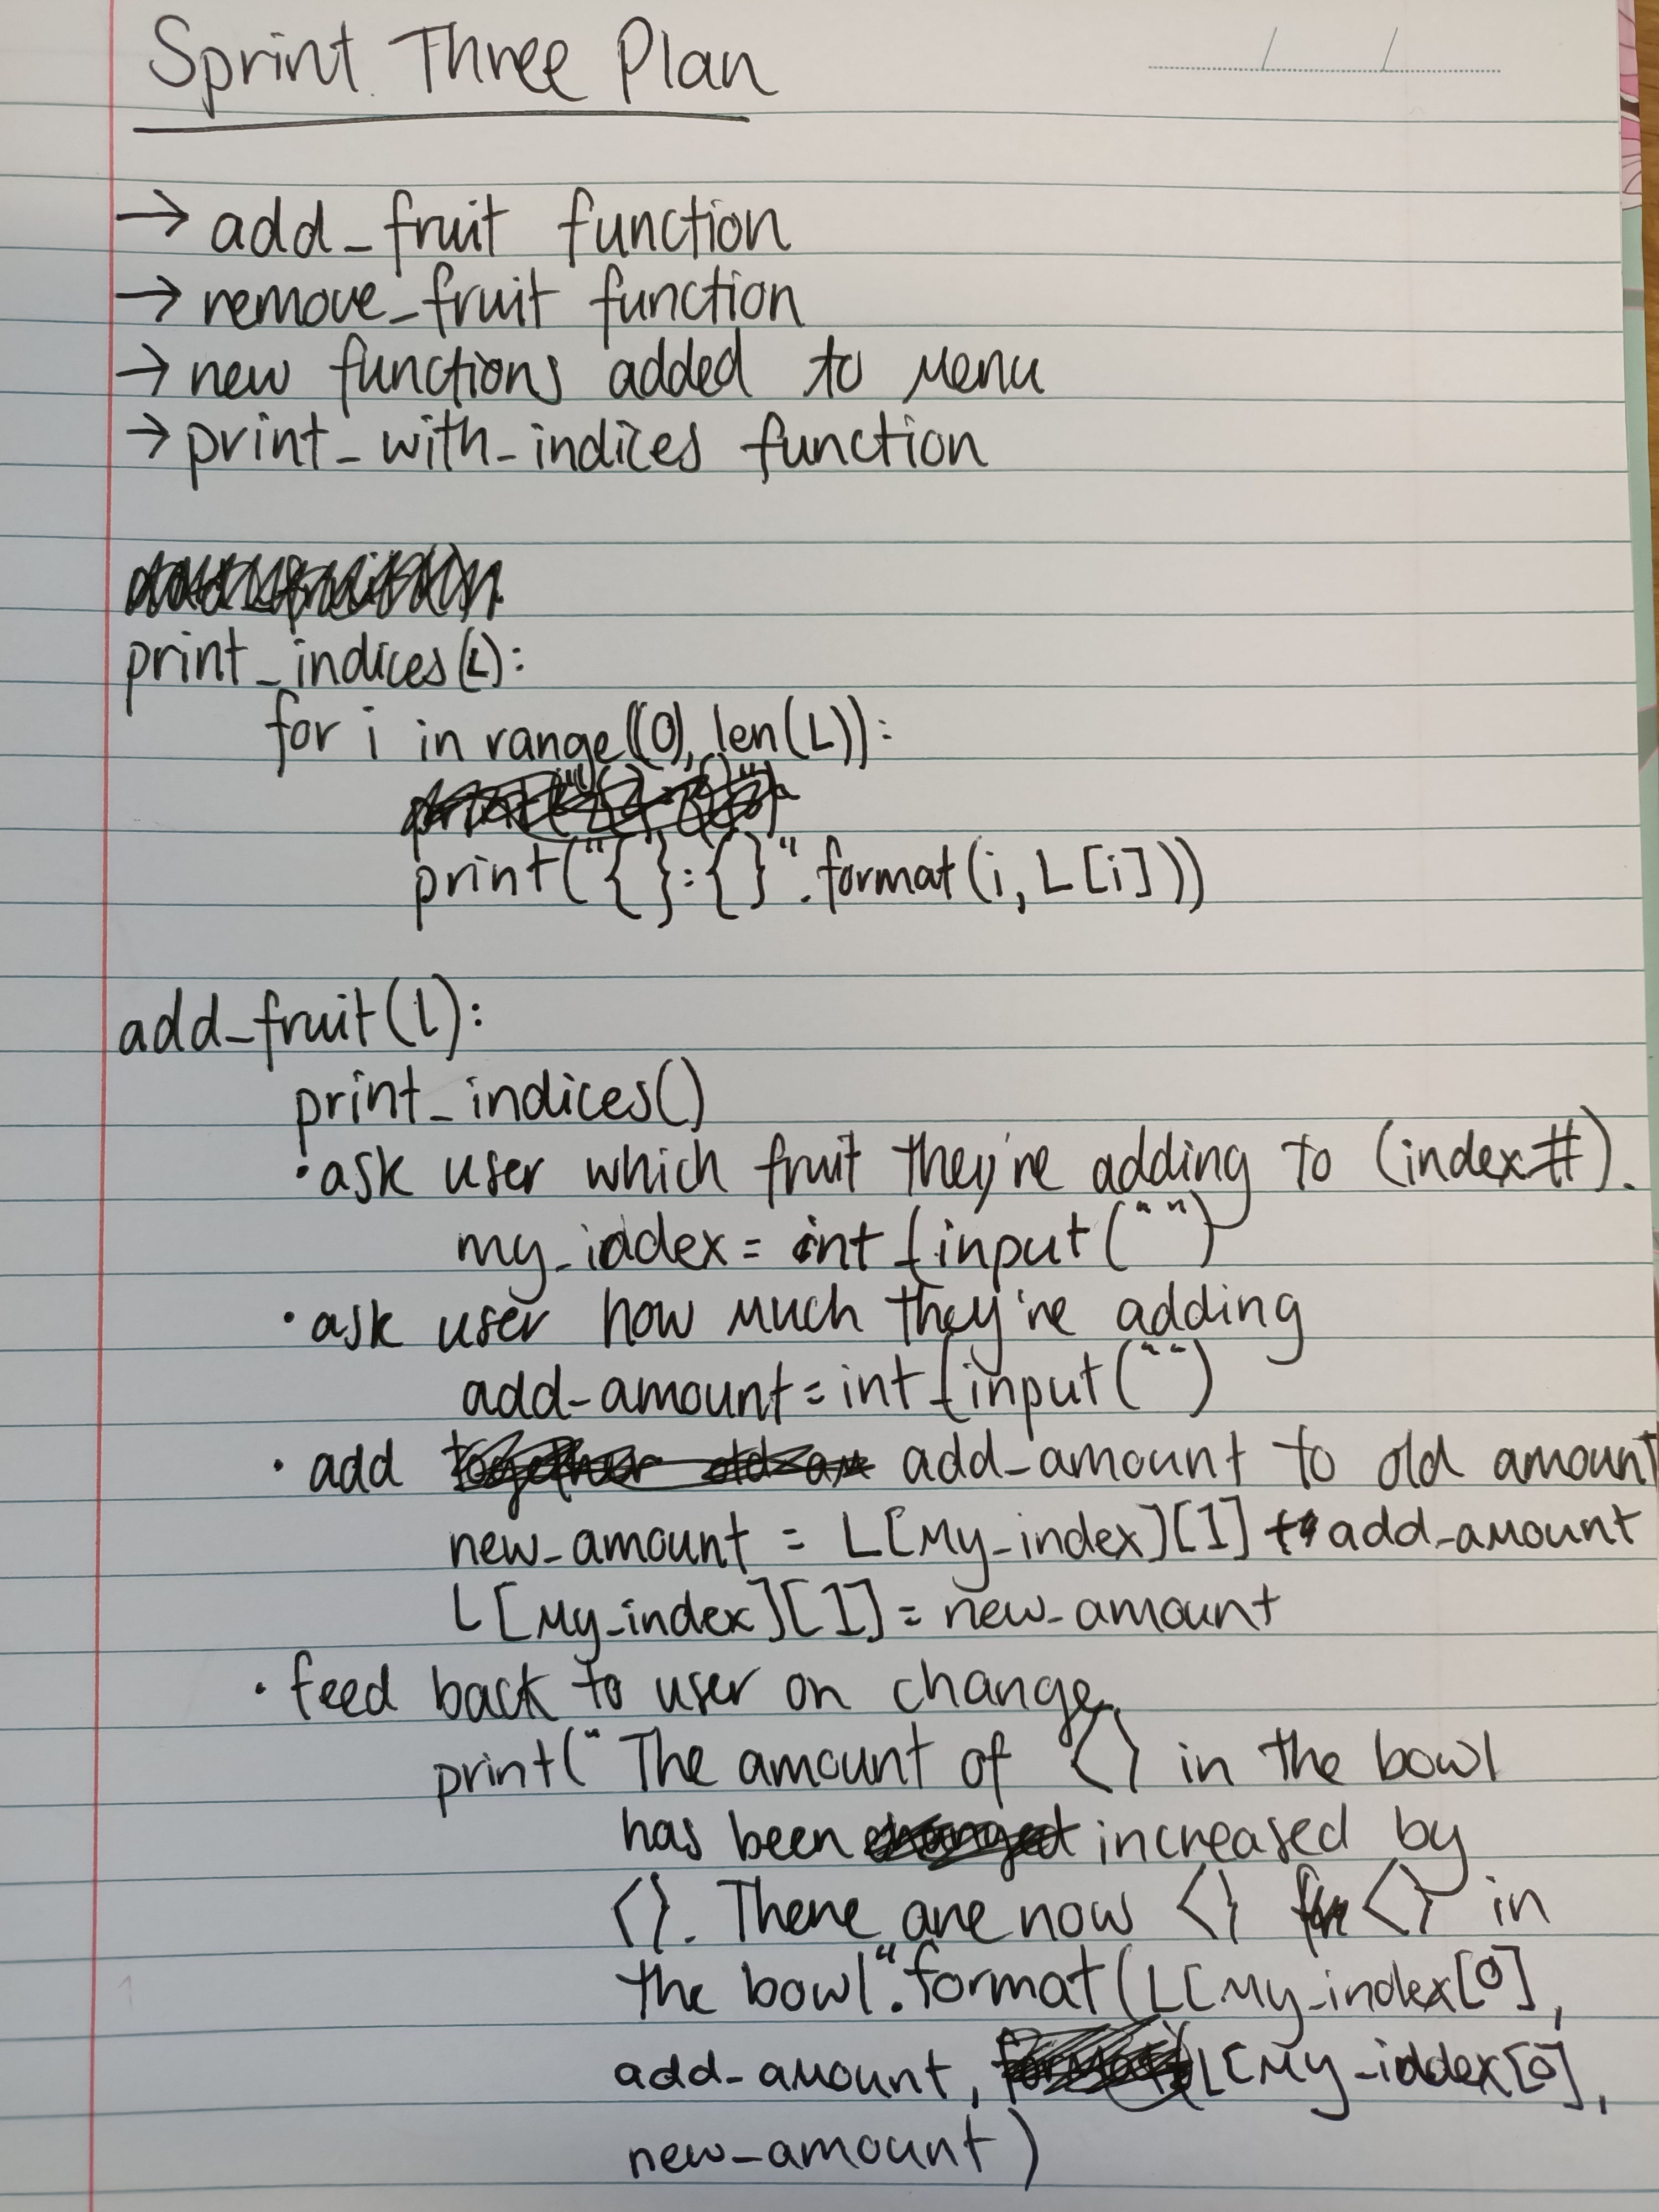 Sprint Three Plan
→ add_fruit function
→ remove_fruit function
→ new functions added to menu
→ print_with_indices function
print_indices(L):
for i in range((0), len(L)):
print("{}:{}".format(i, L[i]))
add_fruit(L):
print_indices()
• ask user which fruit they're adding to (index#).
my_index = int(input("")
• ask user how much they're adding
add_amount = int(input("")
• add add_amount to old amount
new_amount = L[my_index][1] + add_amount
L[my_index][1] = new_amount
• feed back to user on change.
print("The amount of {} in the bowl
has been increased by
{}. There are now {} {} in
the bowl".format(L[my_index[0],
add_amount, L[my_index[0],
new_amount)